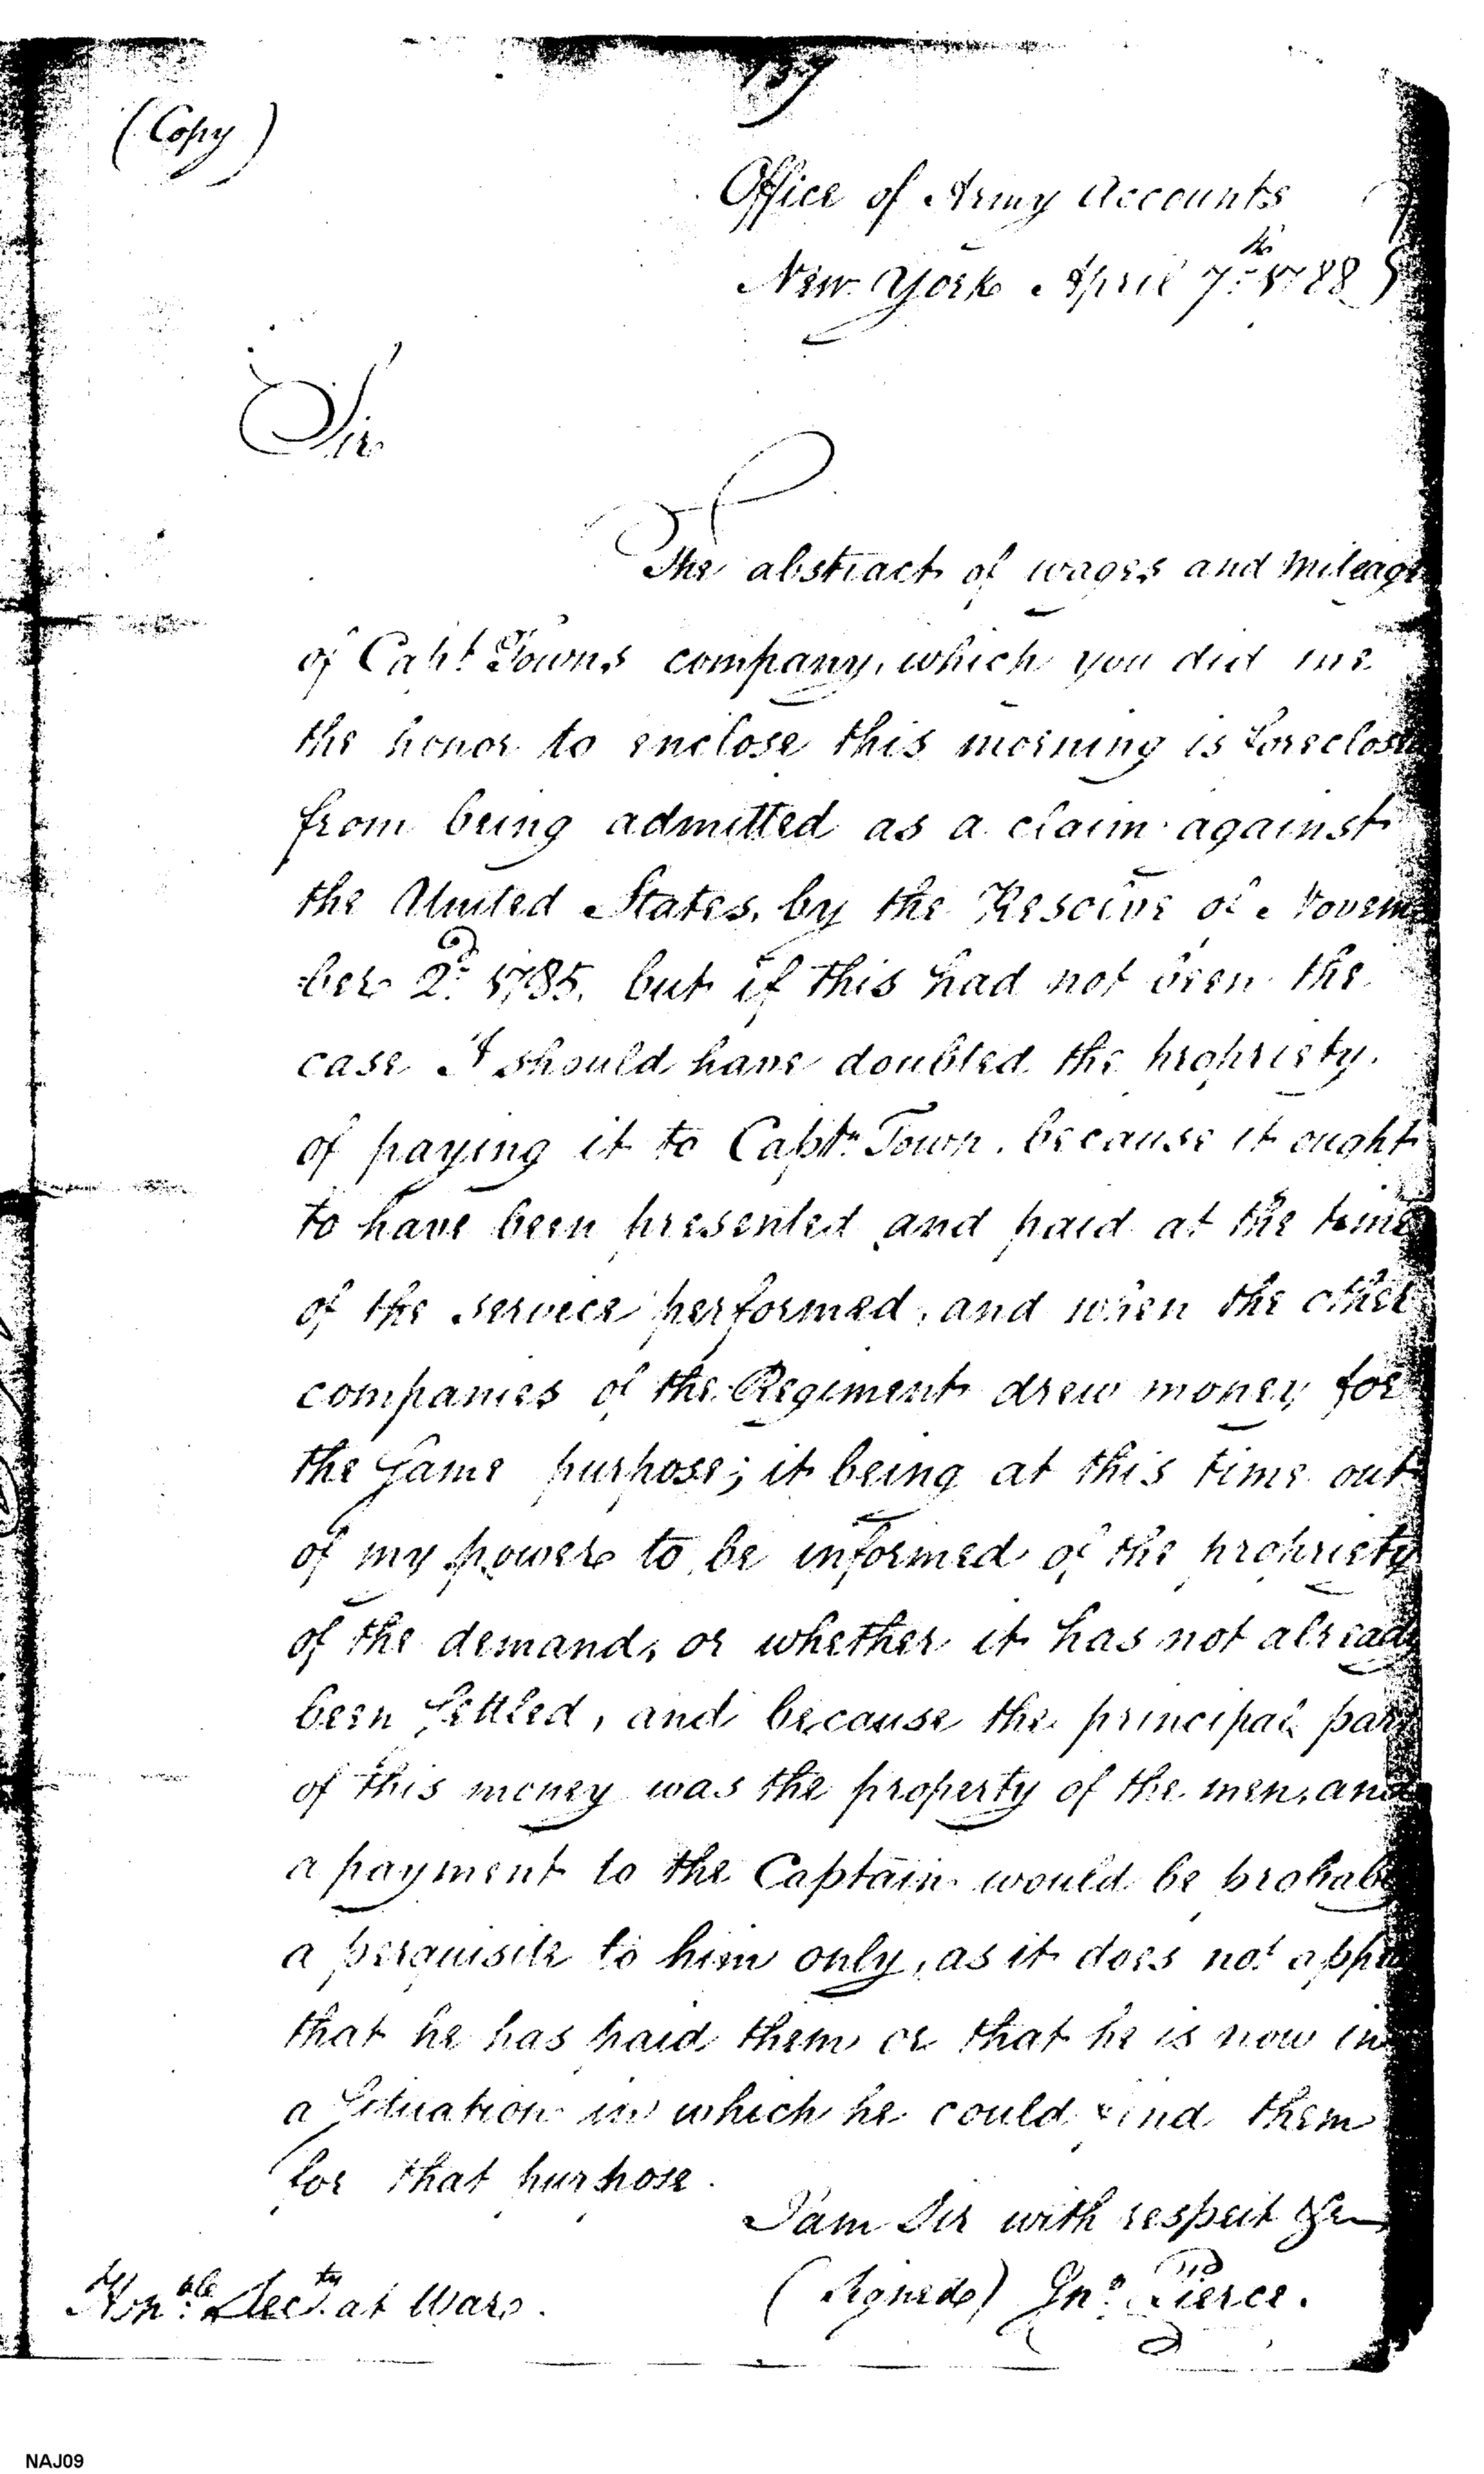 157
(Copy)
Office of Army Accounts
New York April 7th 1788
Sir
The abstract of wages and mileage
of Capt Towns company, which you did me
the honor to enclose this morning is foreclose
from being admitted as a claim against
the United States, by the Resolve of Novem
ber 2d 1785, but if this had not been the
case I should have doubted the propriety
of paying it to Captn Town, because it ought
to have been presented and paid at the time
of the service performed, and when the other
companies of the Regiment drew money for
the same purpose; it being at this time out
of my power to be informed of the propriety
of the demand, or whether it has not already
been settled, and because the principal part
of this money was the property of the men, and
a payment to the Captain would be probab
a perquisite to him only, as it does not appe
that he has paid them or that he is now in
a situation in which he could find them
for that purpose.
I am Sir with respect &c
(Signed) Jno. Pierce.
Honble Secty at War.
NAJ09